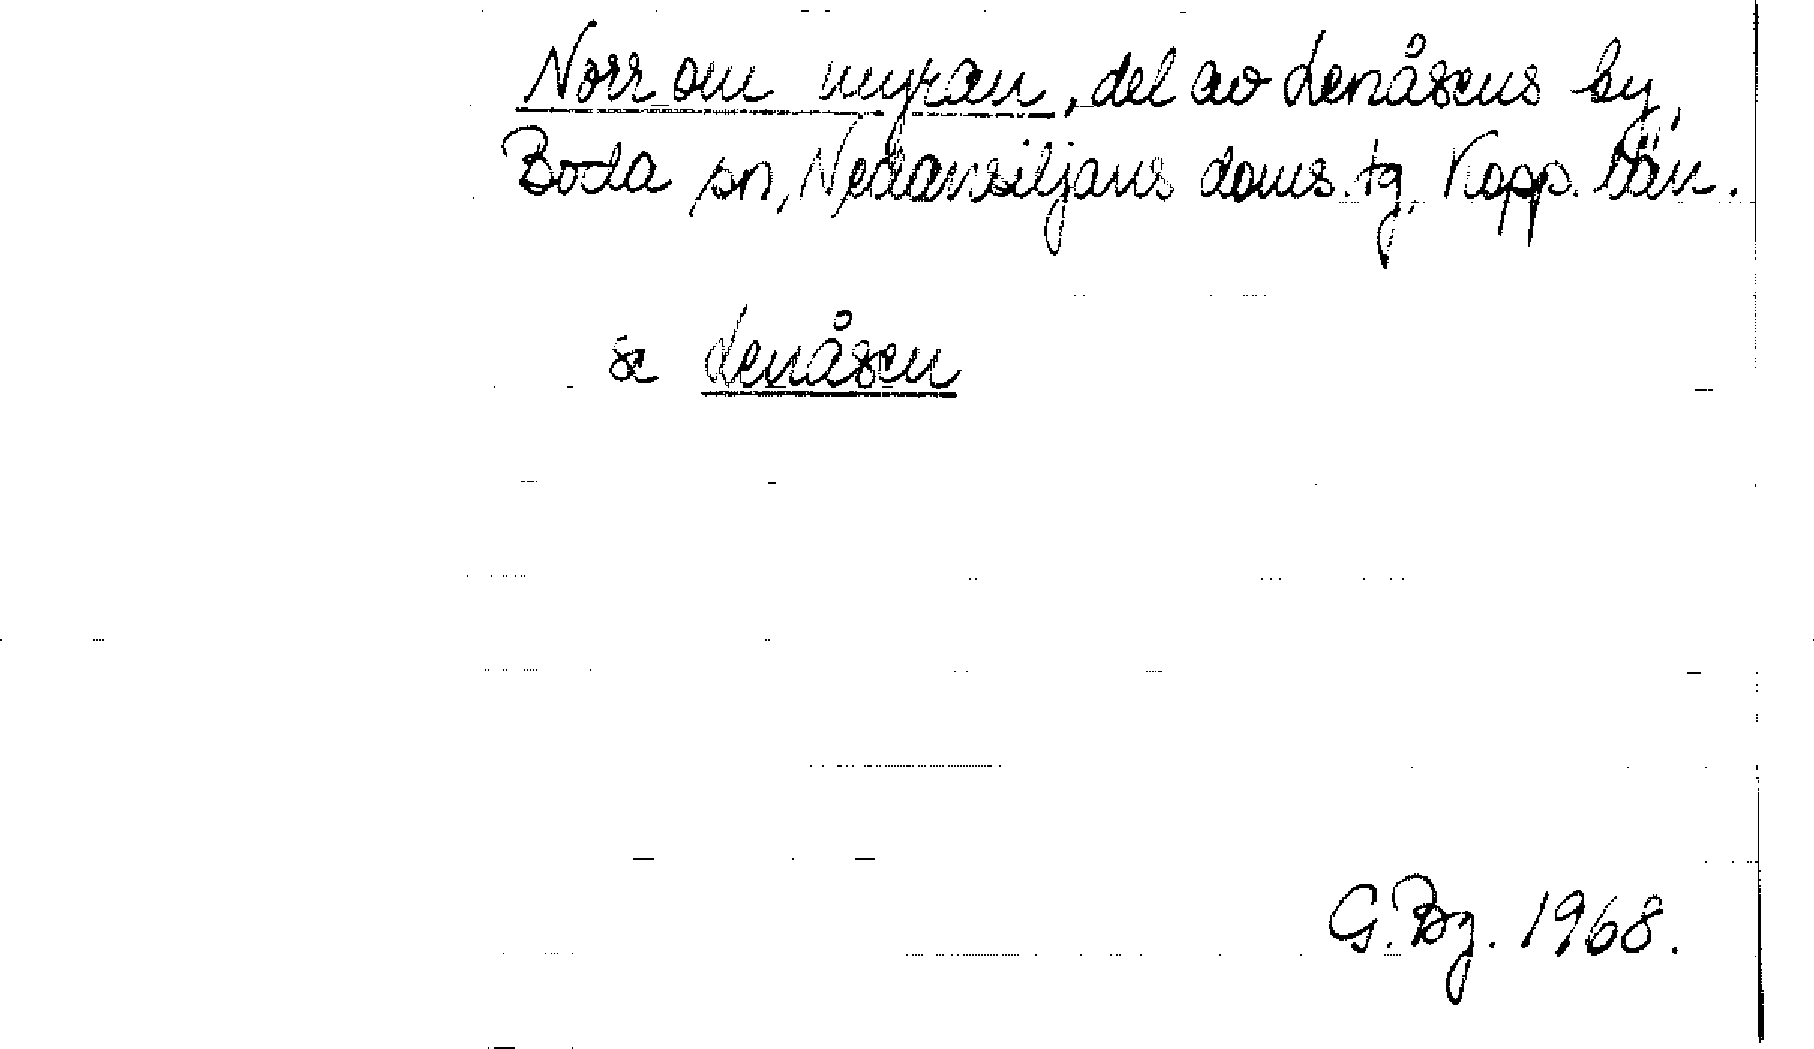 Norr om myran, del av Lenåsens by,
Boda sn, Nedansiljans doms. tg, Kopp. län.
se Lenåsen
G. Bg. 1968.